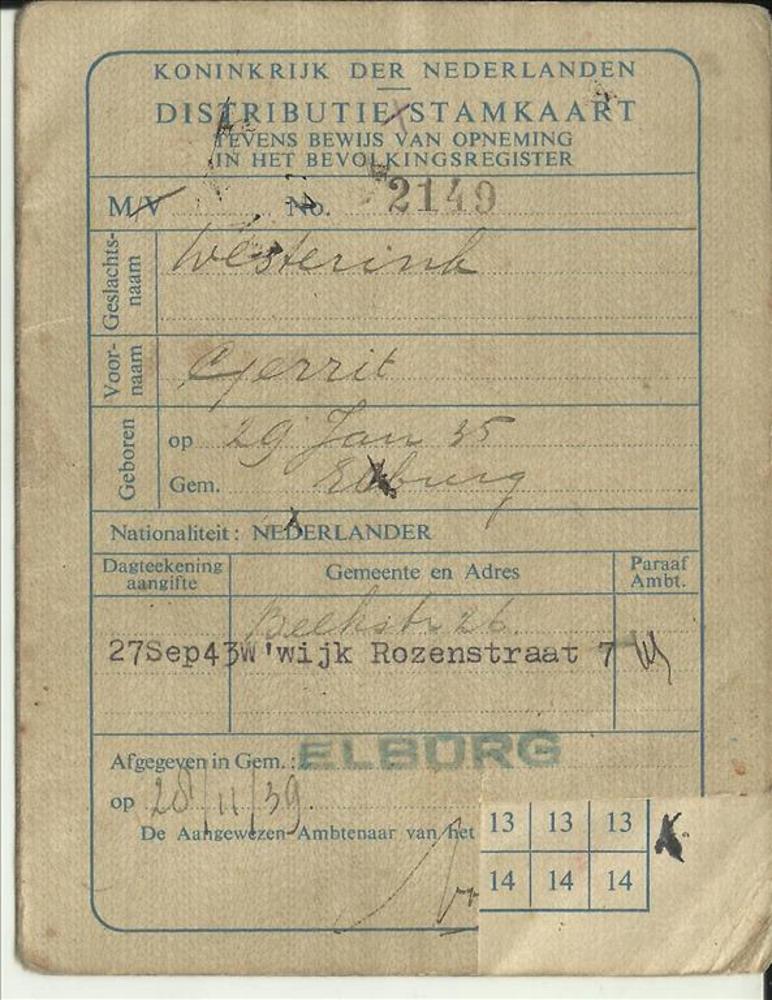 KONINKRIJK DER NEDERLANDEN
DISTRIBUTIE STAMKAART
TEVENS BEWIJS VAN OPNEMING
IN HET BEVOLKINGSREGISTER
M/V No. 2149
Geslachts-
naam
Westerink
Voor-
naam
Gerrit
Geboren
op 29 Jan 35
Gem. Elburg
Nationaliteit: NEDERLANDER
Dagteekening
aangifte
Gemeente en Adres
Paraaf
Ambt.
Beekstr 26.
27Sep43 W'wijk Rozenstraat 7
Afgegeven in Gem.: ELBURG
op 28/11/39.
De Aangewezen Ambtenaar van het
13 13 13
14 14 14